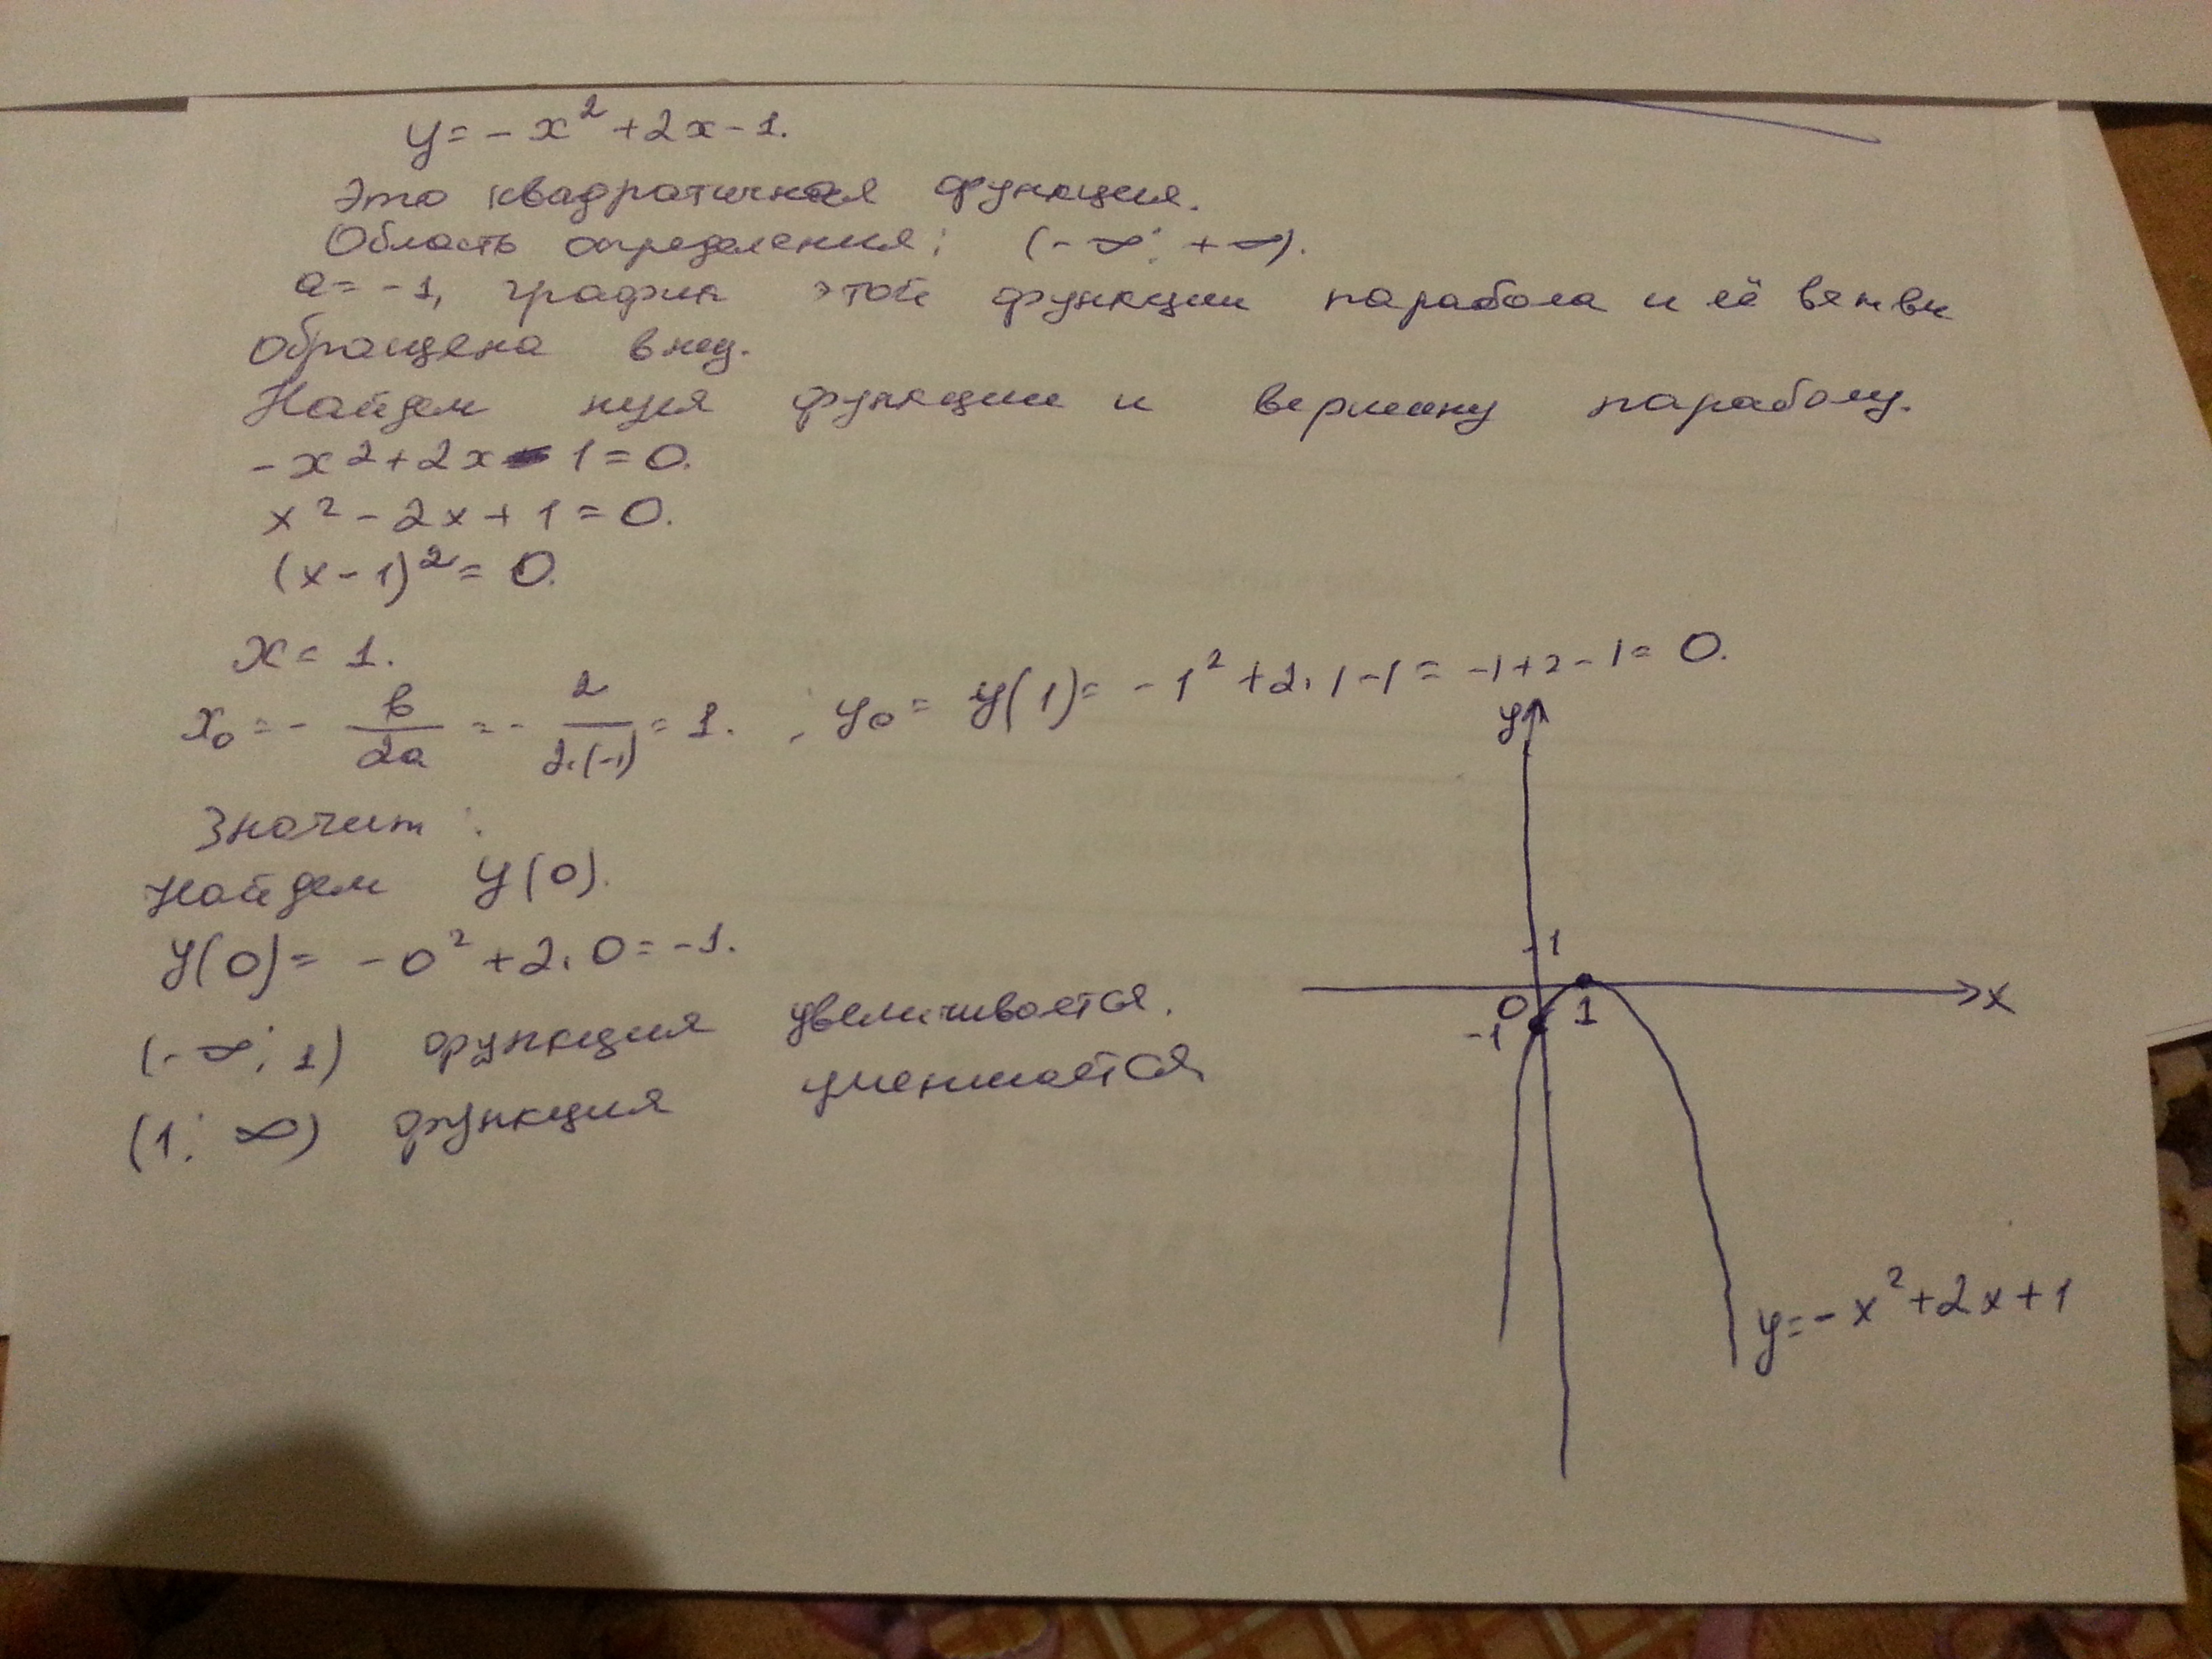 y = - x² + 2x - 1.
Это квадратичная функция.
Область определения: (-∞; +∞).
a = -1, график этой функции парабола и её ветви
обращена вниз.
Найдем нуля функции и вершину параболу.
-x² + 2x - 1 = 0.
x² - 2x + 1 = 0.
(x - 1)² = 0.
x = 1.
x₀ = - в/2a = - 2/2·(-1) = 1. ; y₀ = y(1) = -1² + 2·1 - 1 = -1 + 2 - 1 = 0.
Значит:
Найдем y(0).
y(0) = -0² + 2·0 = -1.
(-∞; 1) функция увеличивается.
(1; ∞) функция уменшается
y
1
0
1
x
-1
y = -x² + 2x + 1